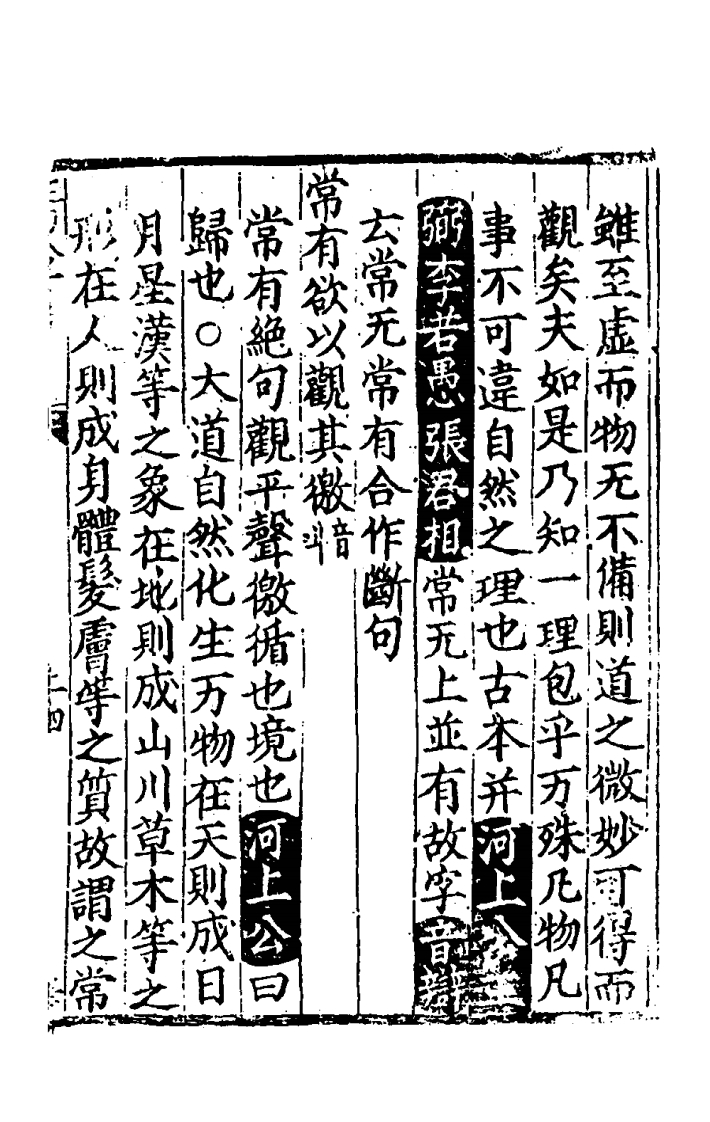 雖至虛而物无不備則道之微妙可得而
觀矣夫如是乃知一理包乎万殊凡物凡
事不可違自然之理也古本并河上公王
弼李若愚張君相常无上並有故字音辯
云常无常有合作斷句
常有欲以觀其徼音叫
常有絶句觀平聲徼循也境也河上公曰
歸也○大道自然化生万物在天則成日
月星漢等之象在地則成山川草木等之
形在人則成身體髮膚等之質故謂之常